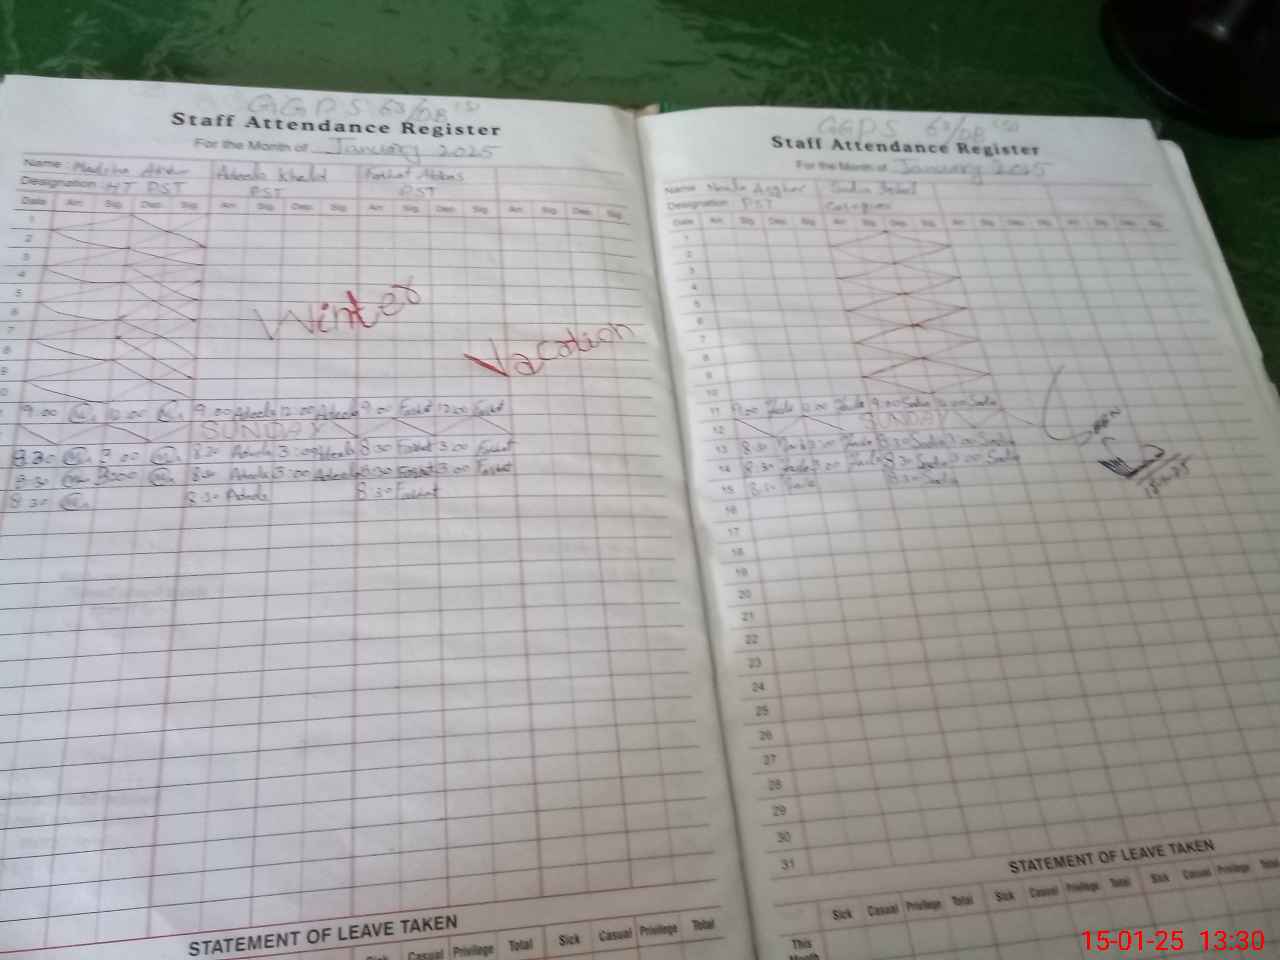 GGPS 63/DB
Staff Attendance Register
For the Month of January 2025
Name Adeela Khalid Farhat Abbas
Designation HT PST PST PST
Date Arr. Sig. Dep. Sig. Arr. Sig. Dep. Sig. Arr. Sig. Dep. Sig. Arr. Sig. Dep. Sig.
1
2
3
4
5
6
7
8
9
Winter
Vacation
9.00 12.00 9.00 Adeela 12.00 Adeela 9.00 Farhat 12.00 Farhat
SUNDAY
8.30 3.00 8.30 Adeela 3.00 Adeela 8.30 Farhat 3.00 Farhat
8.30 3:00 8.30 Adeela 3:00 Adeela 8.30 Farhat 3.00 Farhat
8.30 8.30 Adeela 8.30 Farhat
STATEMENT OF LEAVE TAKEN
Sick Casual Privilege Total Sick Casual Privilege Total
GGPS 63/DB
Staff Attendance Register
For the Month of January 2025
Name Asghar Sadia
Designation PST
Date Arr. Sig. Dep. Sig. Arr. Sig. Dep. Sig. Arr. Sig. Dep. Sig. Arr. Sig. Dep. Sig.
1
2
3
4
5
6
7
8
9
10
11 9.00 9.00 Sadia Sadia
12 SUNDAY
13 8.30 3.00 8.30 Sadia 3.00 Sadia
14 8.30 3.00 8.30 Sadia 3.00 Sadia
15 8.30 8.30 Sadia
Seen
16
17
18
19
20
21
22
23
24
25
26
27
28
29
30
31
STATEMENT OF LEAVE TAKEN
Sick Casual Privilege Total Sick Casual Privilege Total Sick Casual Privilege Total
This
Month
15-01-25 13:30